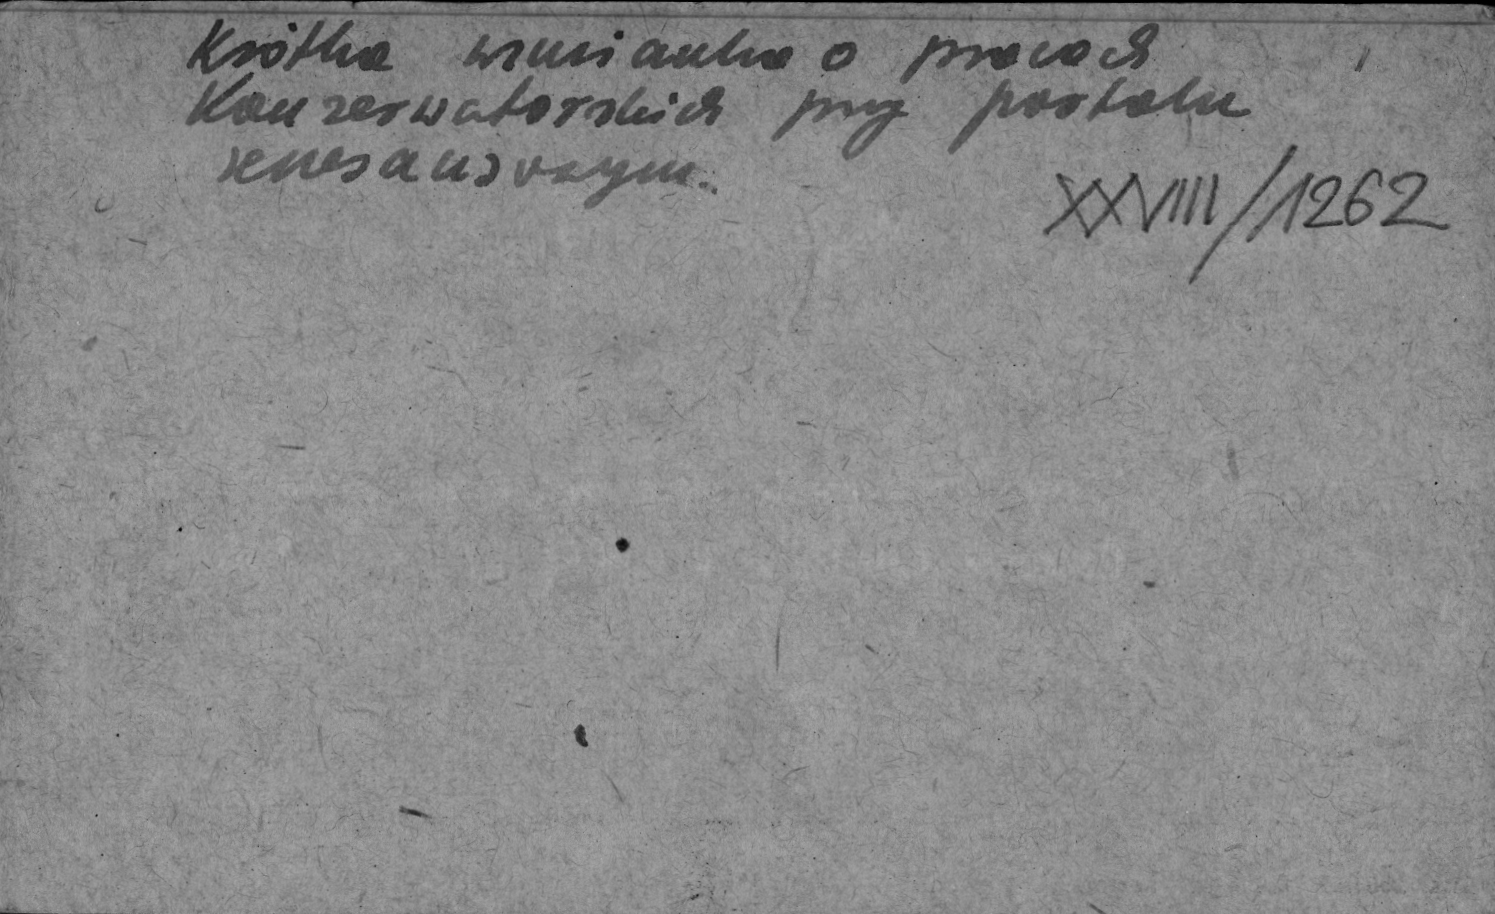 Krótka wzmianka o pracach
Konserwatorskich przy portalu
renesansowym.
XXVIIII/1262